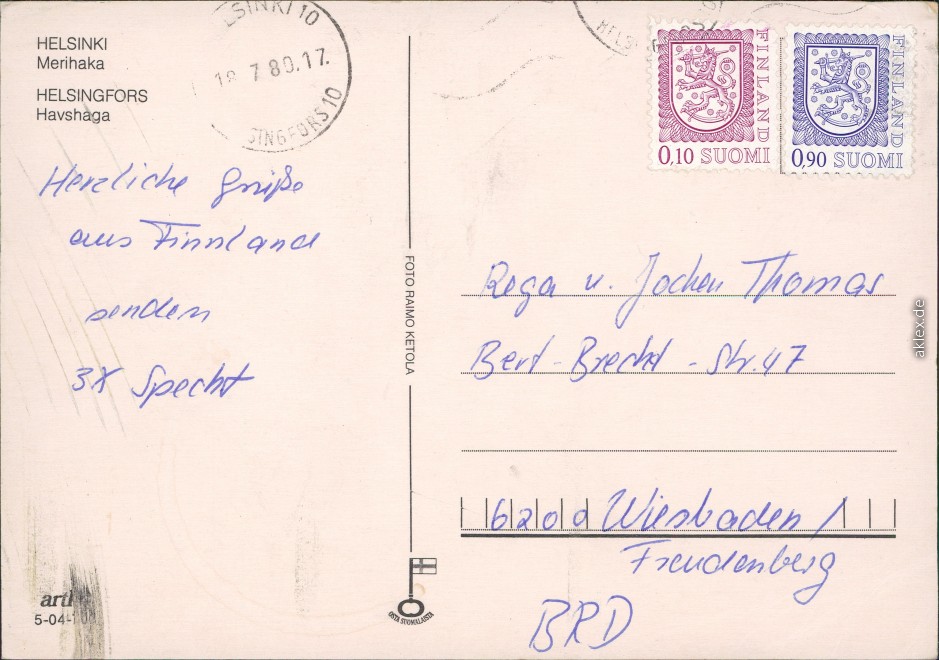 HELSINKI
Merihaka
HELSINGFORS
Havshaga
HELSINKI 10
7 80.17.
SINGFORS 10
Herzliche Grüße
aus Finnland
senden
3X Specht
FOTO RAIMO KETOLA
FINLAND
0,10 SUOMI
FINLAND
0,90 SUOMI
Rega u. Jochen Thomas
Bert-Brecht-Str. 47
6200 Wiesbaden /
Freudenberg
BRD
OSTA SUOMALAISTA
5-04-
aklex.de